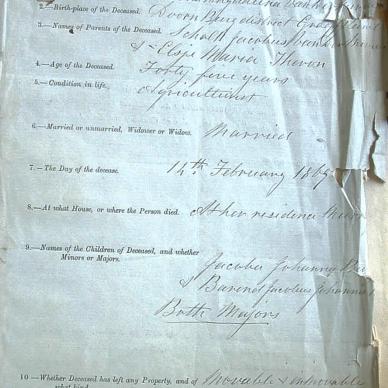 2.—Birth-place of the Deceased. Doorn Berg district
3.—Names of Parents of the Deceased. Schalk Jacobus van
& Elsje Maria Theron
4.—Age of the Deceased. Forty five years
5.—Condition in life, Agriculturist
6.—Married or unmarried, Widower or Widow. Married
7.—The Day of the decease. 14th February
8.—At what House, or where the Person died. At her residence
9.—Names of the Children of Deceased, and whether
Minors or Majors.
Jacobus Johannes
& Barend Jacobus Johannes
Both Majors
10—Whether Deceased has left any Property, and of Movable & immovable
what kind